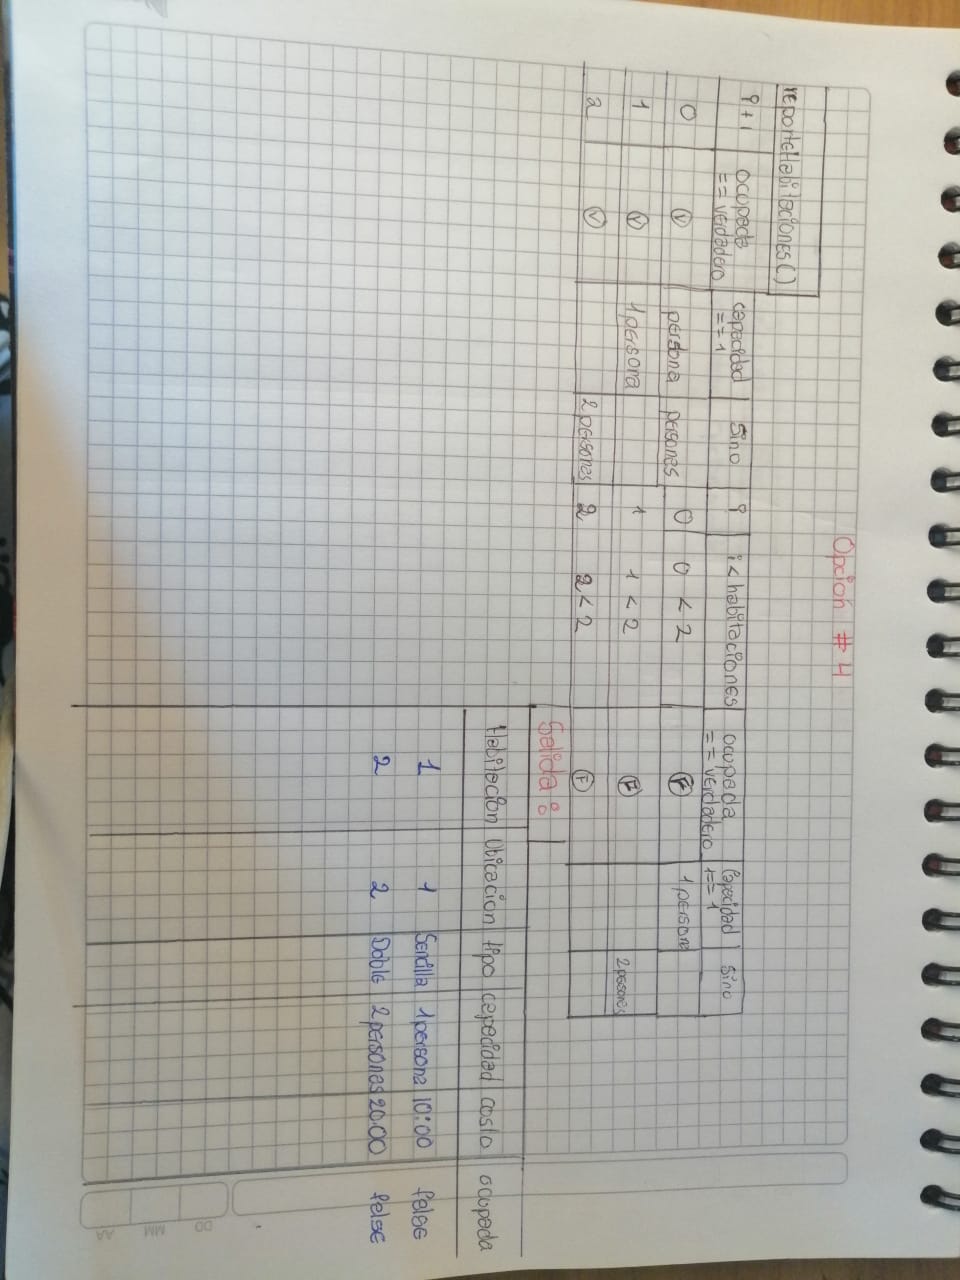 Opción # 4
reporteHabitaciones()
i+1 ocupada == verdadero capacidad == 1 Sino i i < habitaciones ocupada == verdadero Capacidad 1 == 1 sino
0 V persona personas 0 0 < 2 F 1 persona
1 V 1 persona 1 1 < 2 F 2 personas
2 V 2 personas 2 2 < 2 F
Salida:
Habitacion Ubicacion tipo capacidad costo ocupada
1 1 Sencilla 1 persona 10:00 false
2 2 Doble 2 personas 20.00 false
DD MM AA